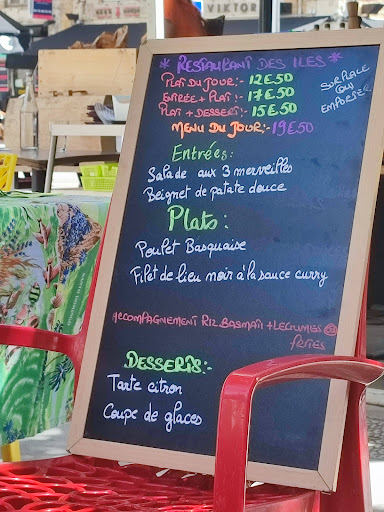 VIKTOR
* RESTAURANT DES ILES *
PLAT DU JOUR:- 12€50
ENTRÉE + PLAT:- 17€50
PLAT + DESSERT:- 15€50
MENU DU JOUR:- 19€50
SUR PLACE
OU
EMPORTER
Entrées:
Salade aux 3 merveilles
Beignet de patate douce
Plats:
Poulet Basquaise
Filet de lieu noir à la sauce curry
ACCOMPAGNEMENT RIZ BASMATI + LEGUMES
FRITES
DESSERTS:-
Tarte citron
Coupe de glaces